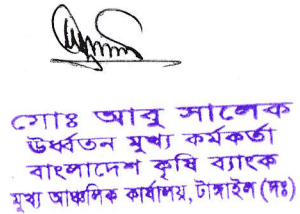 মোঃ আবু সালেক
ঊর্ধ্বতন মুখ্য কর্মকর্তা
বাংলাদেশ কৃষি ব্যাংক
মুখ্য আঞ্চলিক কার্যালয়, টাঙ্গাইল (দঃ)